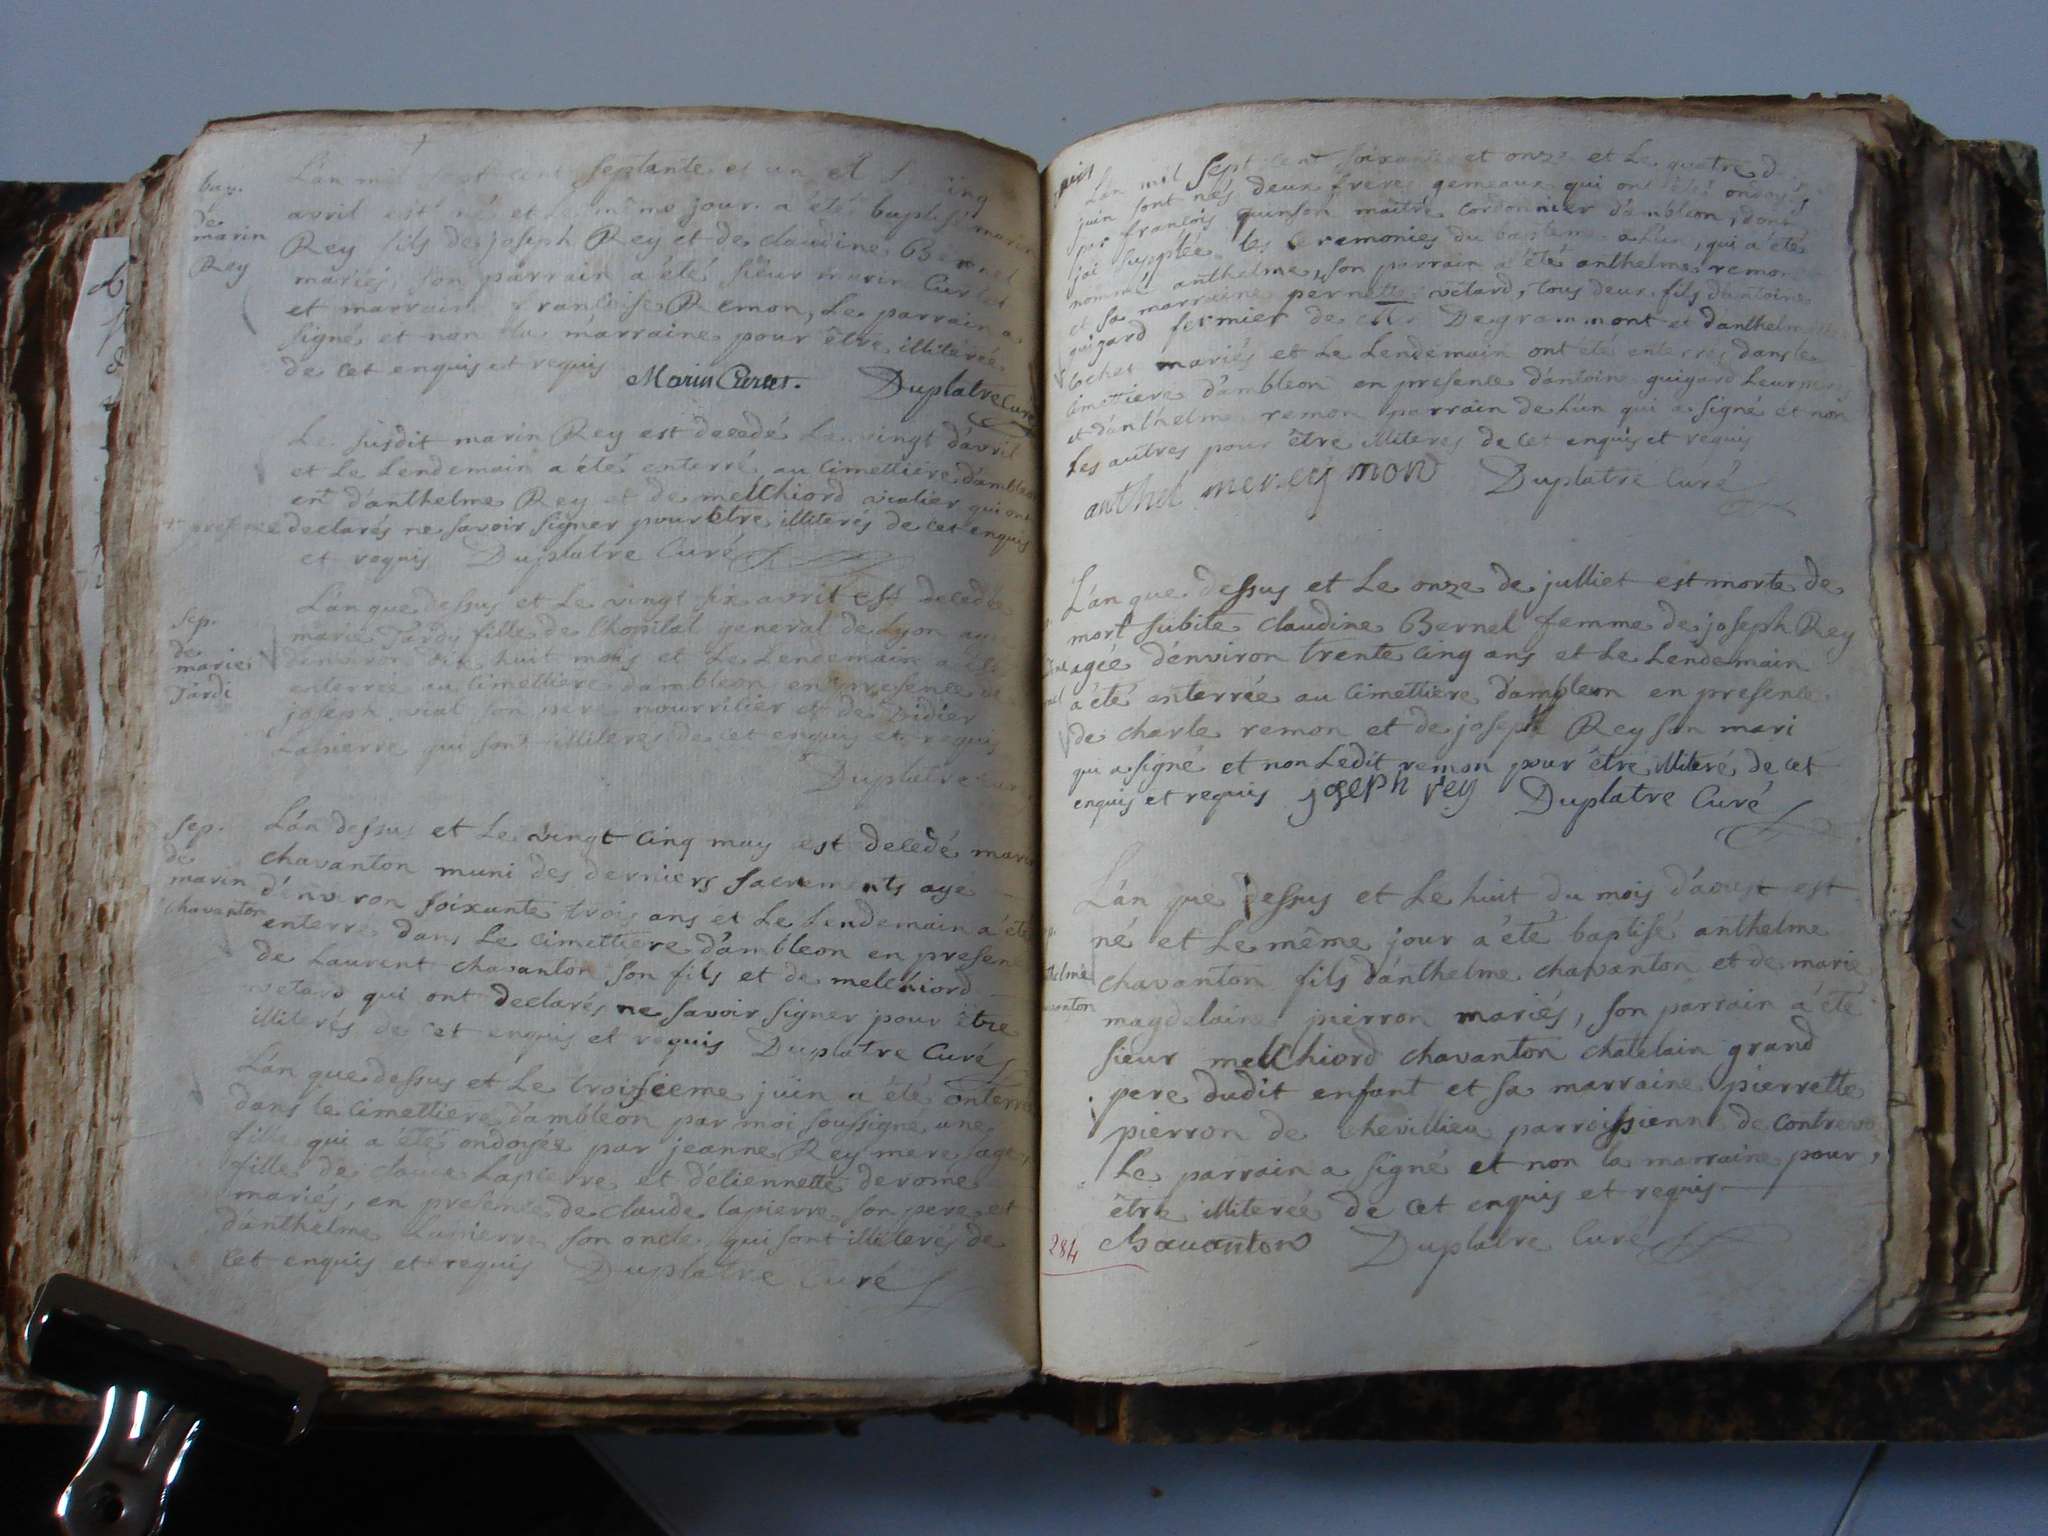 bap.
de
marin
Rey
L'an mil sept cent septante et un et l cinq
avril est né et le même jour a été baptisé marin
Rey fils de joseph Rey et de claudine Bernel
mariés, son parrain a été sieur marin Curtet
et marraine françoise Remon, Le parrain a
signé et non la marraine pour être illiterée
de cet enquis et requis
Marin Curtet. Duplatre Curé
Le susdit marin Rey est decedé Le vingt d'avril
et Le Lendemain a été enterré au cimettiere d'ambleon
en d'anthelme Rey et de melchiord vialier qui ont
presence declarés ne savoir signer pour être illiterés de cet enquis
et requis Duplatre Curé
sep.
de
marie
Tardi
L'an que dessus et Le vingt six avril est decedée
marie Tardy fille de l'hopital general de Lyon agée
d'environ dix huit mois et Le Lendemain a été
enterrée au cimettiere d'ambleon en presence de
joseph vial son pere nourricier et de Didier
Lapierre qui sont illiteres de cet enquis et requis
Duplatre Curé
sep.
de
marin
chavanton
L'an dessus et Le vingt cinq may est decedé marin
chavanton muni des derniers sacrements agé
d'environ soixante trois ans et Le Lendemain a été
enterré dans Le cimettiere d'ambleon en presence
de Laurent chavanton son fils et de melchiord
vetard qui ont declarés ne savoir signer pour être
illiterés de cet enquis et requis Duplatre Curé
L'an que dessus et Le troisieeme juin a été enterré
dans le cimettiere d'ambleon par moi soussigné une
fille qui a été ondoyée par jeanne Rey mere sage,
fille de claude Lapierre et d'étiennette derome
mariés, en presence de claude lapierre son pere et
d'anthelme Lapierre son oncle qui sont illiterés de
cet enquis et requis Duplatre Curé
L'an mil sept cent soixante et onze et Le quatre d
juin sont nés deux freres gemeaux qui ont été ondoyés
par françois quinson maitre cordonnier d'ambleon, dont
jai supplée les ceremonies du bapteme a l'un, qui a été
nommé anthelme, son parrain a été anthelme remon
et sa marraine pernette vetard, tous deux fils d'antoine
guigard fermier de Degrammont et d'anthelmette
cochet mariés et Le Lendemain ont été enterres dans le
cimettiere d'ambleon en presence d'antoine guigard Leur pere
et d'anthelme remon parrain de l'un qui a signé et non
Les autres pour être illiteres de cet enquis et requis
anthelmereymon Duplatre Curé
L'an que dessus et Le onze de julliet est morte de
mort subite claudine Bernel femme de joseph Rey
agée d'environ trente cinq ans et Le Lendemain
a été enterrée au cimettiere d'ambleon en presence
de charle remon et de joseph Rey son mari
qui a signé et non Ledit remon pour être illiteré de cet
enquis et requis joseph rey Duplatre Curé
L'an que dessus et Le huit du mois d'aoust est
né et Le même jour a été baptisé anthelme
chavanton fils d'anthelme chavanton et de marie
magdelaine pierron mariés, son parrain a été
sieur melchiord chavanton chatelain grand
pere dudit enfant et sa marraine pierrette
pierron de chevillieu parroissienne de contrevo
Le parrain a signé et non la marraine pour,
être illiterée de cet enquis et requis
284 chavanton Duplatre Curé